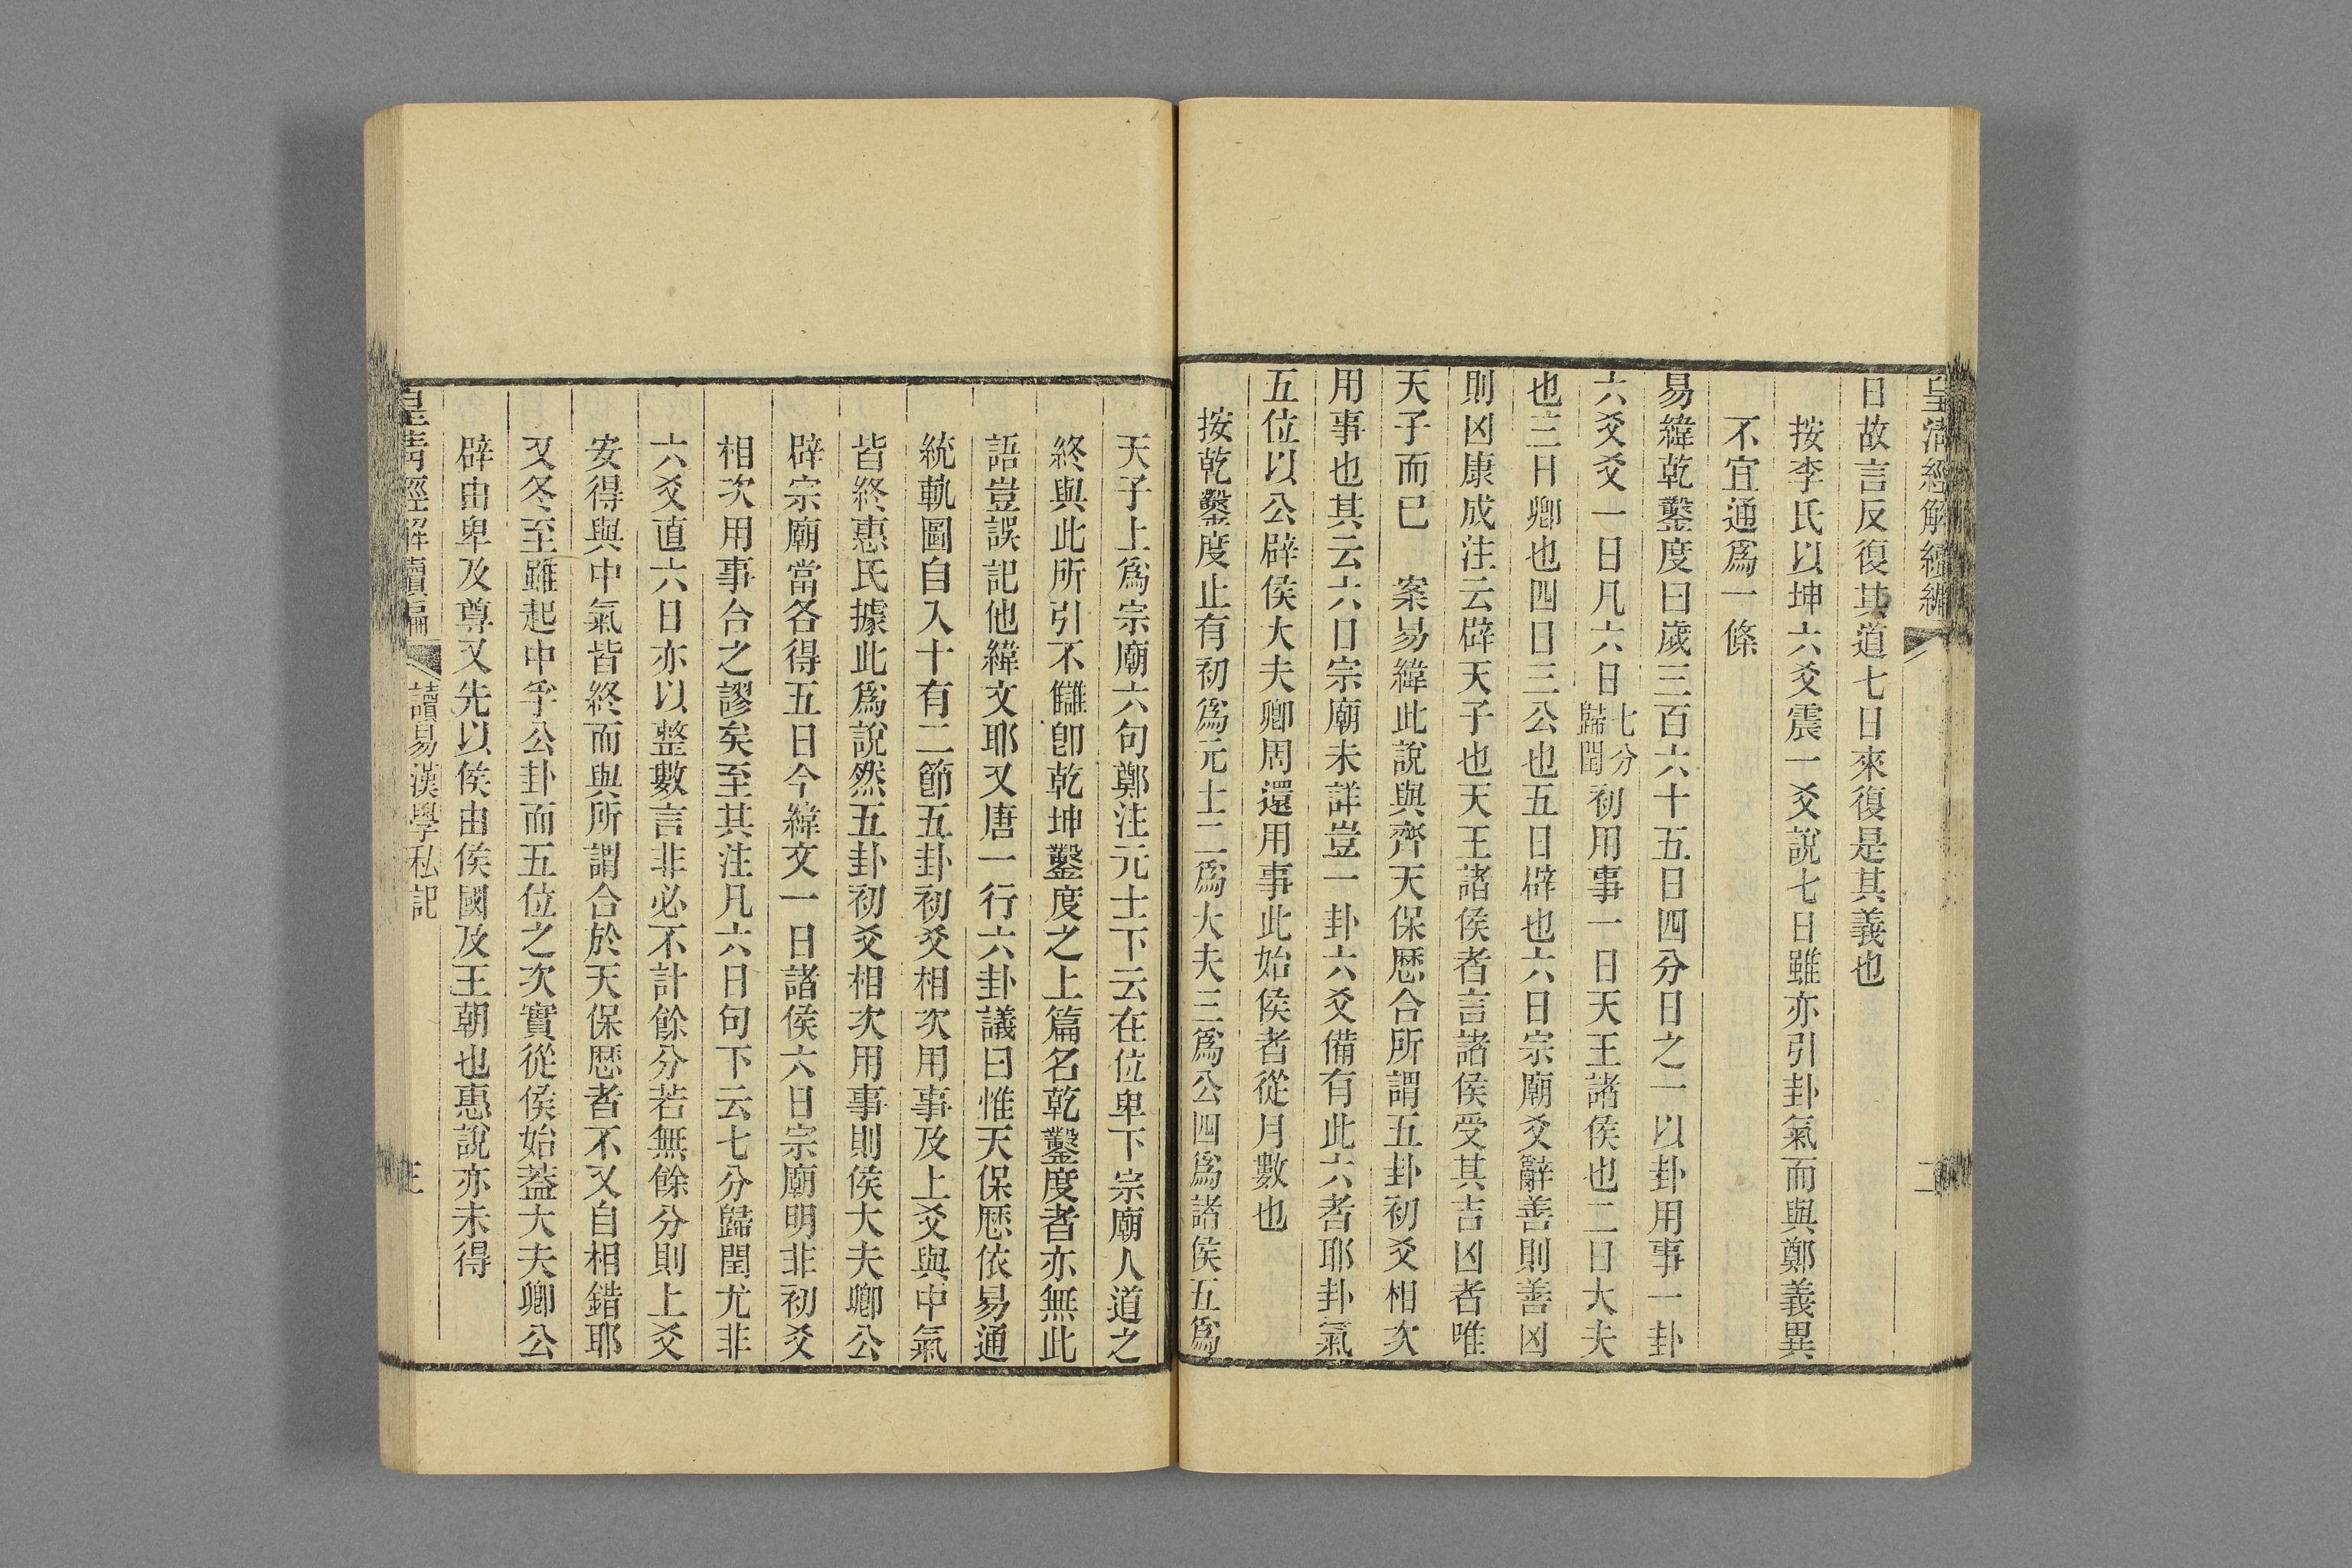 皇清經解續編
日故言反復其道七日來復是其義也
按李氏以坤六爻震一爻說七日雖亦引卦氣而與鄭義異
不宜通爲一條
易緯乾鑿度曰歲三百六十五日四分日之一以卦用事一卦
六爻爻一日凡六日七分歸閏初用事一日天王諸侯也二日大夫
也三日卿也四日三公也五日辟也六日宗廟爻辭善則善凶
則凶康成注云辟天子也天王諸侯者言諸侯受其吉凶者唯
天子而已　案易緯此說與齊天保厯合所謂五卦初爻相次
用事也其云六日宗廟未詳豈一卦六爻備有此六者耶卦氣
五位以公辟侯大夫卿周還用事此始侯者從月數也
按乾鑿度止有初爲元士二爲大夫三爲公四爲諸侯五爲
天子上爲宗廟六句鄭注元士下云在位卑下宗廟人道之
終與此所引不讎卽乾坤鑿度之上篇名乾鑿度者亦無此
語豈誤記他緯文耶又唐一行六卦議曰惟天保厯依易通
統軌圖自入十有二節五卦初爻相次用事及上爻與中氣
皆終惠氏據此爲說然五卦初爻相次用事則侯大夫卿公
辟宗廟當各得五日今緯文一日諸侯六日宗廟明非初爻
相次用事合之謬矣至其注凡六日句下云七分歸閏尤非
六爻直六日亦以整數言非必不計餘分若無餘分則上爻
安得與中氣皆終而與所謂合於天保厯者不又自相錯耶
又冬至雖起中孚公卦而五位之次實從侯始蓋大夫卿公
辟由卑及尊又先以侯由侯國及王朝也惠說亦未得
皇清經解續編
讀易漢學私記